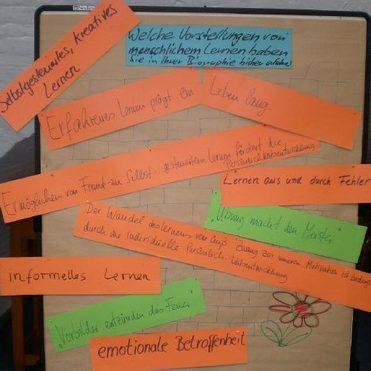 Welche Vorstellungen von
menschlichem Lernen haben
Sie in Ihrer Biographie bisher
Selbstgesteuertes, kreatives
Lernen
Erfahrenes Lernen prägt ein Leben lang
Ermöglichen von Fremd- zu Selbst- gesteuertem Lernen fördert die
Persönlichkeitsentwicklung
Lernen aus und durch Fehler
"Übung macht den Meister"
Der Wandel des Lernens von äuß. Zwang zur inneren Motivation ist bedingt
durch die individuelle Persönlichkeitsentwicklung
informelles Lernen
"Vorbilder entzünden das Feuer"
emotionale Betroffenheit